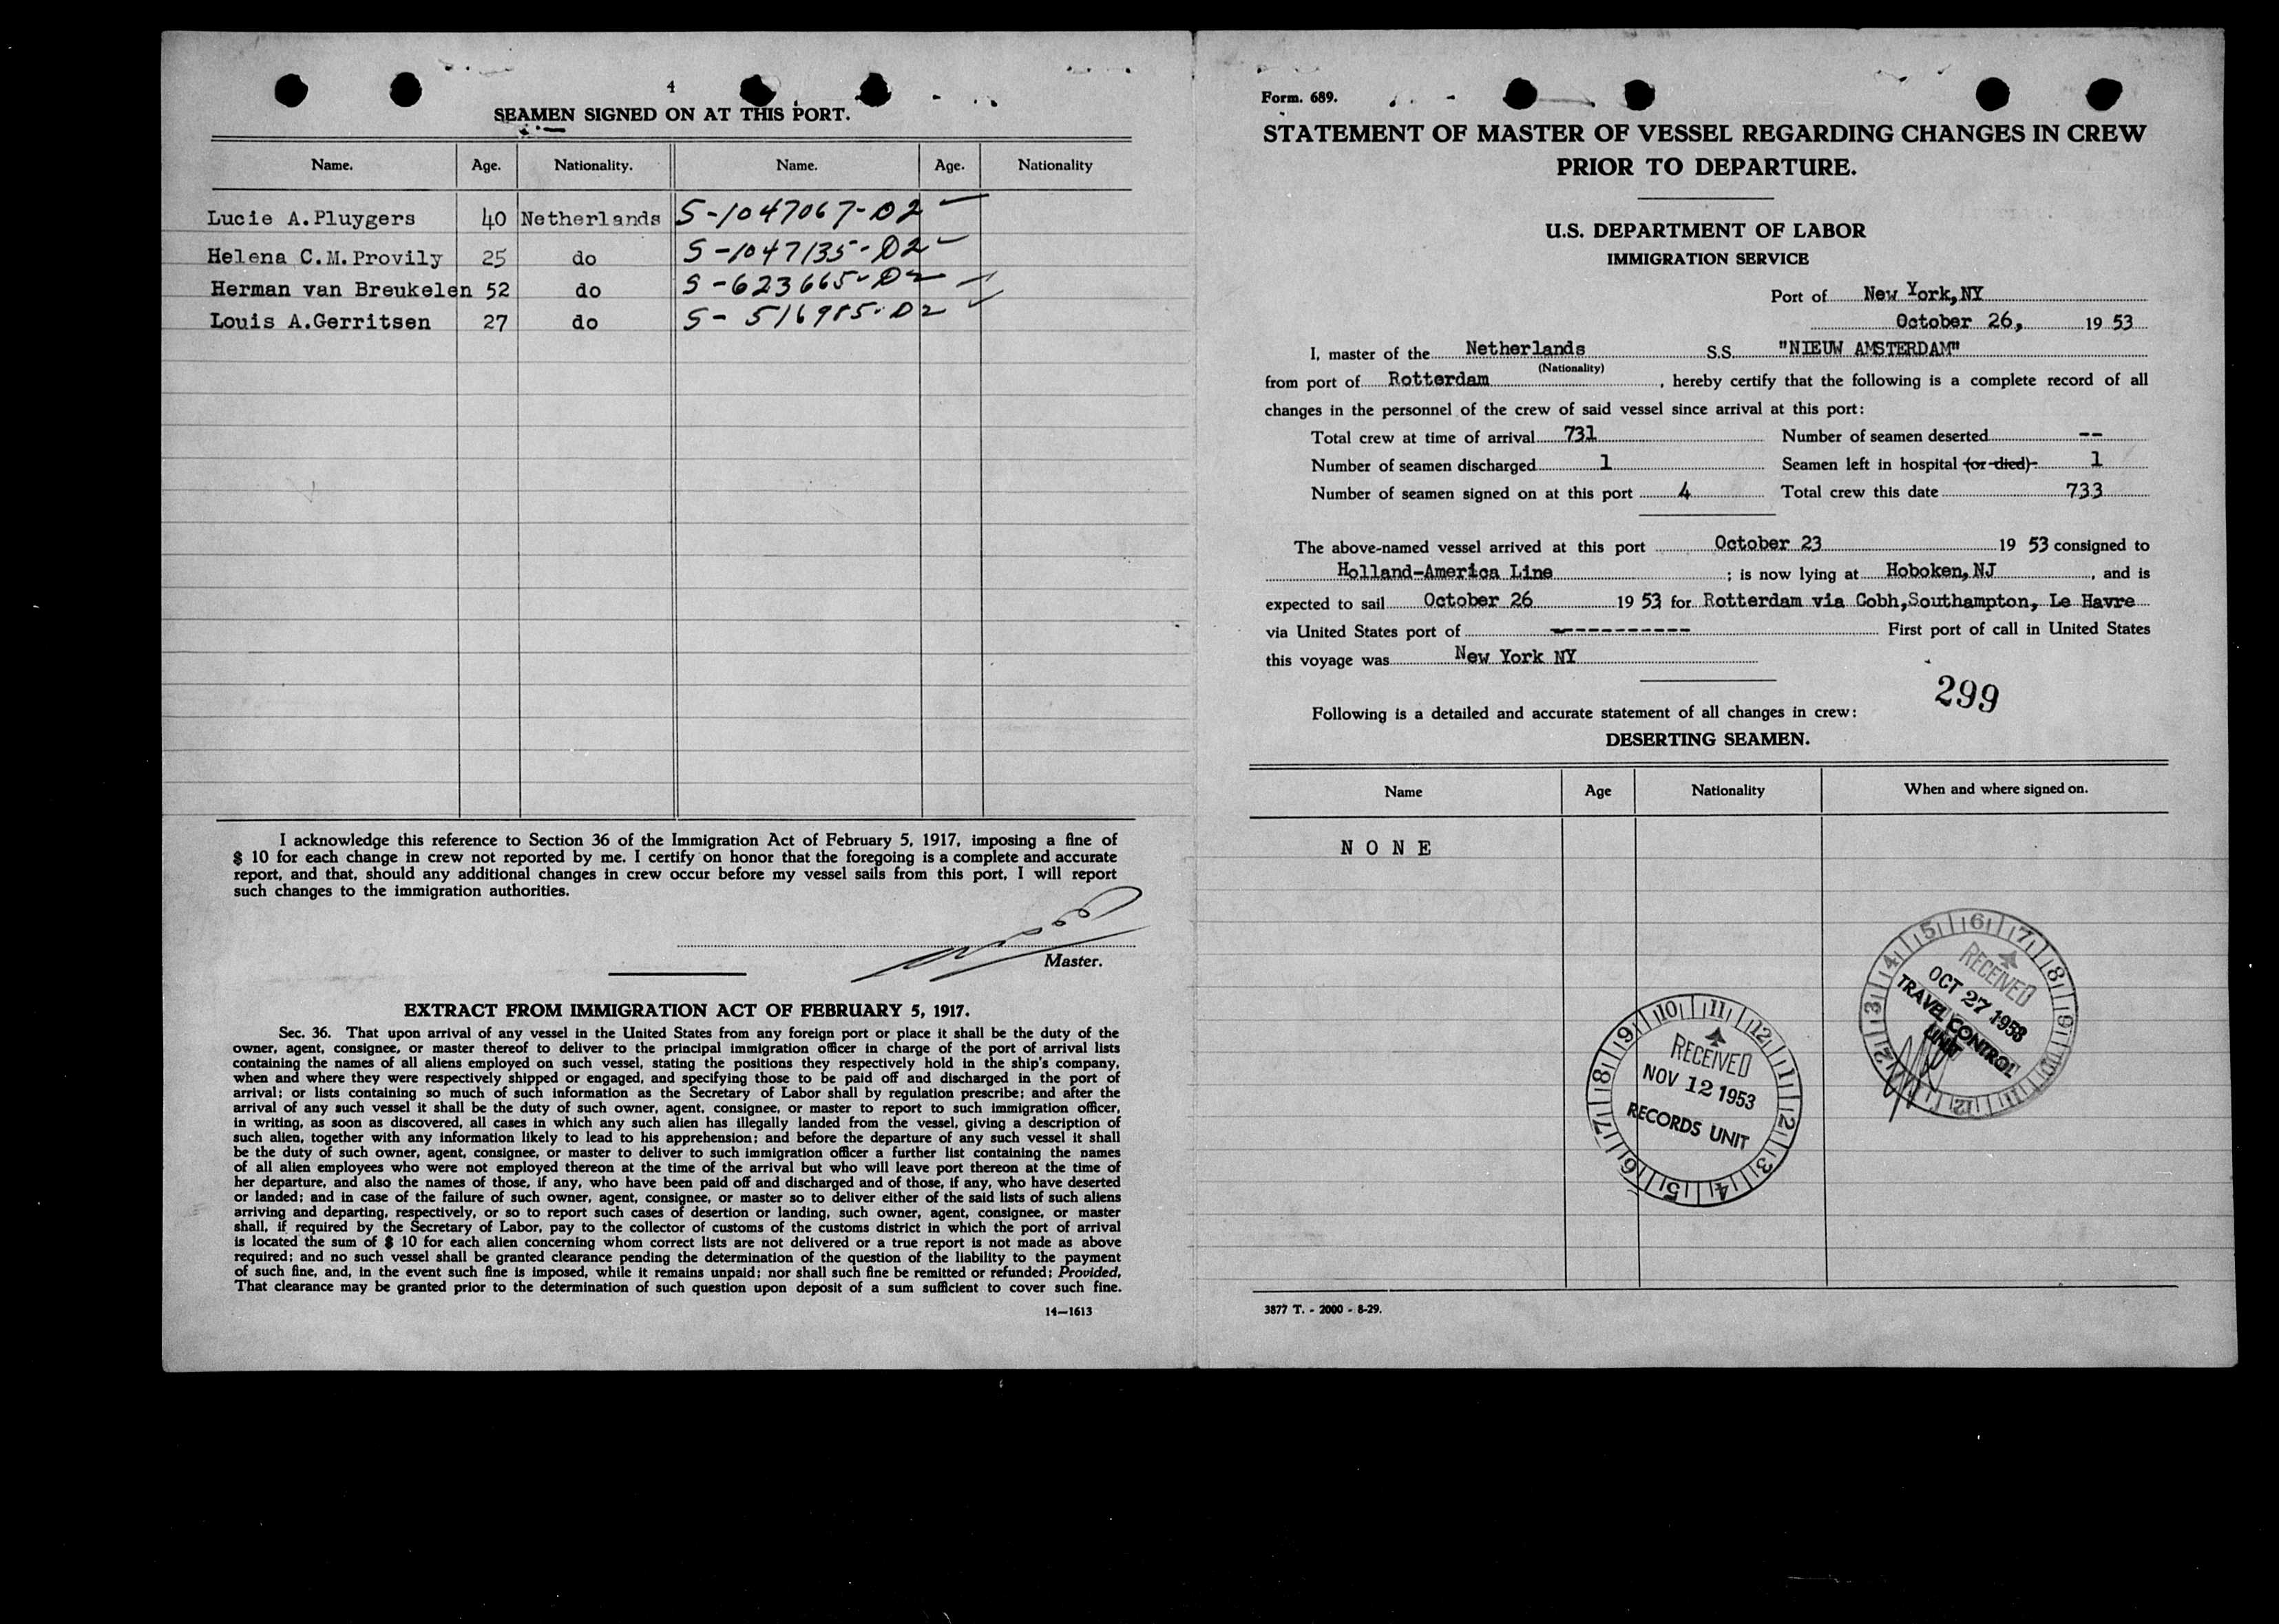 4
SEAMEN SIGNED ON AT THIS PORT.
Name. Age. Nationality. Name. Age. Nationality
Lucie A.Pluygers 40 Netherlands S-1047067-D2
Helena C.M.Provily 25 do S-1047135-D2
Herman van Breukelen 52 do S-623665-D2
Louis A.Gerritsen 27 do S- 516985-D2
I acknowledge this reference to Section 36 of the Immigration Act of February 5, 1917, imposing a fine of
$ 10 for each change in crew not reported by me. I certify on honor that the foregoing is a complete and accurate
report, and that, should any additional changes in crew occur before my vessel sails from this port, I will report
such changes to the immigration authorities.
Master.
EXTRACT FROM IMMIGRATION ACT OF FEBRUARY 5, 1917.
Sec. 36. That upon arrival of any vessel in the United States from any foreign port or place it shall be the duty of the
owner, agent, consignee, or master thereof to deliver to the principal immigration officer in charge of the port of arrival lists
containing the names of all aliens employed on such vessel, stating the positions they respectively hold in the ship's company,
when and where they were respectively shipped or engaged, and specifying those to be paid off and discharged in the port of
arrival; or lists containing so much of such information as the Secretary of Labor shall by regulation prescribe; and after the
arrival of any such vessel it shall be the duty of such owner, agent, consignee, or master to report to such immigration officer,
in writing, as soon as discovered, all cases in which any such alien has illegally landed from the vessel, giving a description of
such alien, together with any information likely to lead to his apprehension; and before the departure of any such vessel it shall
be the duty of such owner, agent, consignee, or master to deliver to such immigration officer a further list containing the names
of all alien employees who were not employed thereon at the time of the arrival but who will leave port thereon at the time of
her departure, and also the names of those, if any, who have been paid off and discharged and of those, if any, who have deserted
or landed; and in case of the failure of such owner, agent, consignee, or master so to deliver either of the said lists of such aliens
arriving and departing, respectively, or so to report such cases of desertion or landing, such owner, agent, consignee, or master
shall, if required by the Secretary of Labor, pay to the collector of customs of the customs district in which the port of arrival
is located the sum of $ 10 for each alien concerning whom correct lists are not delivered or a true report is not made as above
required; and no such vessel shall be granted clearance pending the determination of the question of the liability to the payment
of such fine, and, in the event such fine is imposed, while it remains unpaid; nor shall such fine be remitted or refunded; Provided,
That clearance may be granted prior to the determination of such question upon deposit of a sum sufficient to cover such fine.
14—1613
Form. 689.
STATEMENT OF MASTER OF VESSEL REGARDING CHANGES IN CREW
PRIOR TO DEPARTURE.
U.S. DEPARTMENT OF LABOR
IMMIGRATION SERVICE
Port of New York,NY
October 26, 19 53
I, master of the Netherlands S.S. "NIEUW AMSTERDAM"
(Nationality)
from port of Rotterdam, hereby certify that the following is a complete record of all
changes in the personnel of the crew of said vessel since arrival at this port:
Total crew at time of arrival 731 Number of seamen deserted --
Number of seamen discharged 1 Seamen left in hospital (or died) 1
Number of seamen signed on at this port 4 Total crew this date 733
The above-named vessel arrived at this port October 23 19 53 consigned to
Holland-America Line ; is now lying at Hoboken,NJ, and is
expected to sail October 26 19 53 for Rotterdam via Cobh,Southampton, Le Havre
via United States port of ------------ First port of call in United States
this voyage was New York NY
299
Following is a detailed and accurate statement of all changes in crew:
DESERTING SEAMEN.
Name Age Nationality When and where signed on.
N O N E
RECEIVED
OCT 27 1953
TRAVEL CONTROL
UNIT
RECEIVED
NOV 12 1953
RECORDS UNIT
3877 T. - 2000 - 8-29.